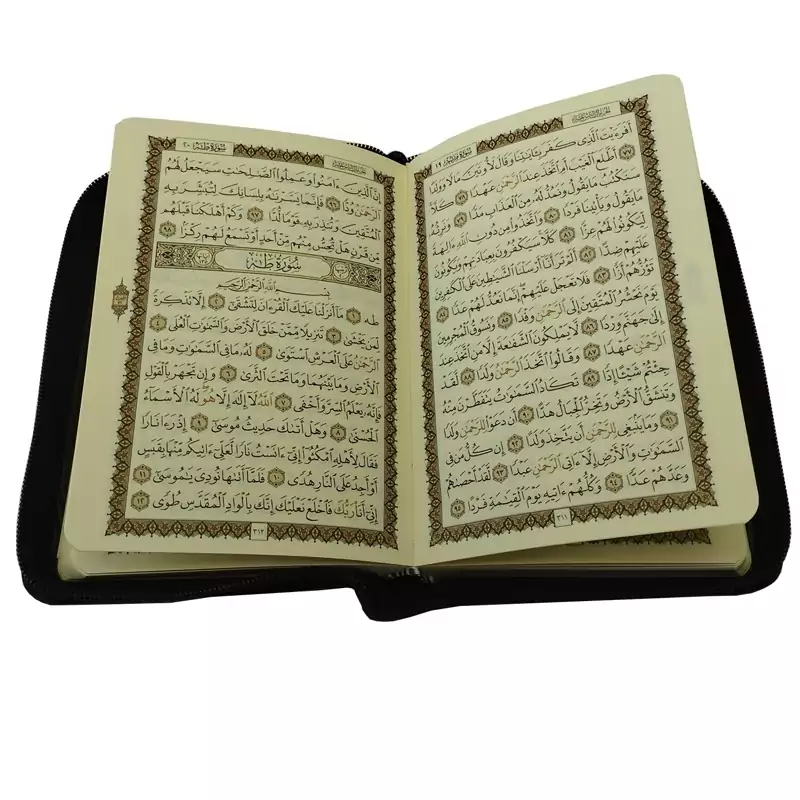 سُورَةُ مَرْيَمَ ١٩
أَفَرَءَيْتَ ٱلَّذِى كَفَرَ بِـَٔايَٰتِنَا وَقَالَ لَأُوتَيَنَّ مَالًا وَوَلَدًا ٧٧
أَطَّلَعَ ٱلْغَيْبَ أَمِ ٱتَّخَذَ عِندَ ٱلرَّحْمَٰنِ عَهْدًا ٧٨ كَلَّا
سَنَكْتُبُ مَا يَقُولُ وَنَمُدُّ لَهُۥ مِنَ ٱلْعَذَابِ مَدًّا ٧٩ وَنَرِثُهُۥ
مَا يَقُولُ وَيَأْتِينَا فَرْدًا ٨٠ وَٱتَّخَذُوا۟ مِن دُونِ ٱللَّهِ ءَالِهَةً
لِّيَكُونُوا۟ لَهُمْ عِزًّا ٨١ كَلَّا سَيَكْفُرُونَ بِعِبَادَتِهِمْ وَيَكُونُونَ
عَلَيْهِمْ ضِدًّا ٨٢ أَلَمْ تَرَ أَنَّآ أَرْسَلْنَا ٱلشَّيَٰطِينَ عَلَى ٱلْكَٰفِرِينَ
تَؤُزُّهُمْ أَزًّا ٨٣ فَلَا تَعْجَلْ عَلَيْهِمْ إِنَّمَا نَعُدُّ لَهُمْ عَدًّا ٨٤
يَوْمَ نَحْشُرُ ٱلْمُتَّقِينَ إِلَى ٱلرَّحْمَٰنِ وَفْدًا ٨٥ وَنَسُوقُ ٱلْمُجْرِمِينَ
إِلَىٰ جَهَنَّمَ وِرْدًا ٨٦ لَّا يَمْلِكُونَ ٱلشَّفَٰعَةَ إِلَّا مَنِ ٱتَّخَذَ عِندَ
ٱلرَّحْمَٰنِ عَهْدًا ٨٧ وَقَالُوا۟ ٱتَّخَذَ ٱلرَّحْمَٰنُ وَلَدًا ٨٨ لَّقَدْ
جِئْتُمْ شَيْـًٔا إِدًّا ٨٩ تَكَادُ ٱلسَّمَٰوَٰتُ يَتَفَطَّرْنَ مِنْهُ
وَتَنشَقُّ ٱلْأَرْضُ وَتَخِرُّ ٱلْجِبَالُ هَدًّا ٩٠ أَن دَعَوْا۟ لِلرَّحْمَٰنِ وَلَدًا
٩١ وَمَا يَنۢبَغِى لِلرَّحْمَٰنِ أَن يَتَّخِذَ وَلَدًا ٩٢ إِن كُلُّ مَن فِى
ٱلسَّمَٰوَٰتِ وَٱلْأَرْضِ إِلَّآ ءَاتِى ٱلرَّحْمَٰنِ عَبْدًا ٩٣ لَّقَدْ أَحْصَىٰهُمْ
وَعَدَّهُمْ عَدًّا ٩٤ وَكُلُّهُمْ ءَاتِيهِ يَوْمَ ٱلْقِيَٰمَةِ فَرْدًا ٩٥
٣١١
سُورَةُ طه ٢٠
إِنَّ ٱلَّذِينَ ءَامَنُوا۟ وَعَمِلُوا۟ ٱلصَّٰلِحَٰتِ سَيَجْعَلُ لَهُمُ
ٱلرَّحْمَٰنُ وُدًّا ٩٦ فَإِنَّمَا يَسَّرْنَٰهُ بِلِسَانِكَ لِتُبَشِّرَ بِهِ
ٱلْمُتَّقِينَ وَتُنذِرَ بِهِۦ قَوْمًا لُّدًّا ٩٧ وَكَمْ أَهْلَكْنَا قَبْلَهُم
مِّن قَرْنٍ هَلْ تُحِسُّ مِنْهُم مِّنْ أَحَدٍ أَوْ تَسْمَعُ لَهُمْ رِكْزًۢا ٩٨
سُورَةُ طه
بِسْمِ ٱللَّهِ ٱلرَّحْمَٰنِ ٱلرَّحِيمِ
طه ١ مَآ أَنزَلْنَا عَلَيْكَ ٱلْقُرْءَانَ لِتَشْقَىٰٓ ٢ إِلَّا تَذْكِرَةً
لِّمَن يَخْشَىٰ ٣ تَنزِيلًا مِّمَّنْ خَلَقَ ٱلْأَرْضَ وَٱلسَّمَٰوَٰتِ ٱلْعُلَى ٤
ٱلرَّحْمَٰنُ عَلَى ٱلْعَرْشِ ٱسْتَوَىٰ ٥ لَهُۥ مَا فِى ٱلسَّمَٰوَٰتِ وَمَا فِى
ٱلْأَرْضِ وَمَا بَيْنَهُمَا وَمَا تَحْتَ ٱلثَّرَىٰ ٦ وَإِن تَجْهَرْ بِٱلْقَوْلِ
فَإِنَّهُۥ يَعْلَمُ ٱلسِّرَّ وَأَخْفَى ٧ ٱللَّهُ لَآ إِلَٰهَ إِلَّا هُوَ لَهُ ٱلْأَسْمَآءُ
ٱلْحُسْنَىٰ ٨ وَهَلْ أَتَىٰكَ حَدِيثُ مُوسَىٰٓ ٩ إِذْ رَءَا نَارًا
فَقَالَ لِأَهْلِهِ ٱمْكُثُوٓا۟ إِنِّىٓ ءَانَسْتُ نَارًا لَّعَلِّىٓ ءَاتِيكُم مِّنْهَا بِقَبَسٍ
أَوْ أَجِدُ عَلَى ٱلنَّارِ هُدًى ١٠ فَلَمَّآ أَتَىٰهَا نُودِىَ يَٰمُوسَىٰٓ ١١
إِنِّىٓ أَنَا۠ رَبُّكَ فَٱخْلَعْ نَعْلَيْكَ إِنَّكَ بِٱلْوَادِ ٱلْمُقَدَّسِ طُوًى ١٢
٣١٢